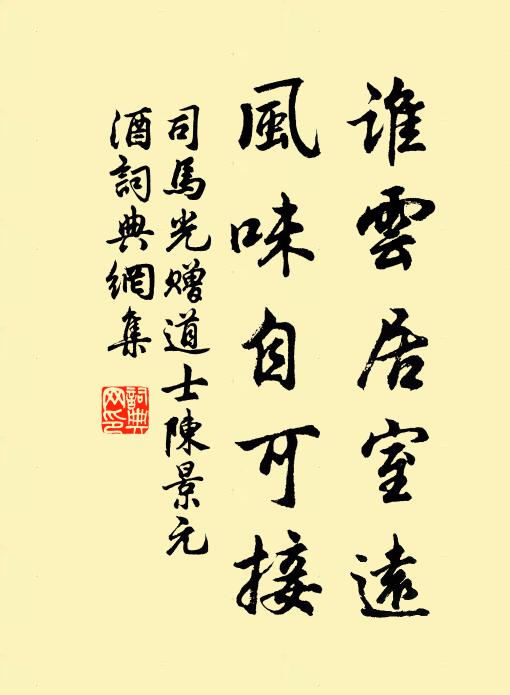 誰雲居室遠
風味自可接
司馬光贈道士陳景元
酒詞典網集
詞典
网印